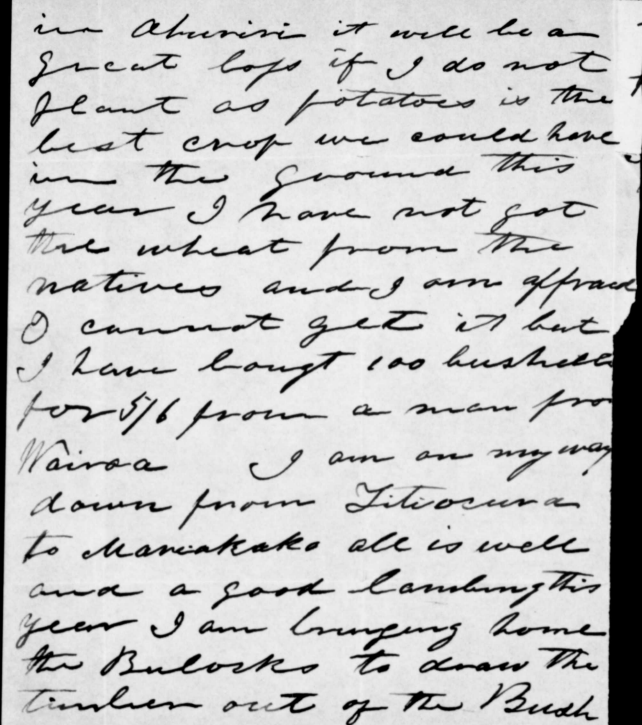 in Ahuriri it will be a
great loss if I do not
plant as potatoes is the
best crop we could have
in the ground this
year I have not got
the wheat from the
natives and I am affraid
I cannot get it but
I have bougt 100 bushells
for 5/6 from a man from
Wairoa I am on my way
down from Titiocura
to Maraikako all is well
and a good lambing this
year I am bringing home
the Bulocks to draw the
timber out of the Bush